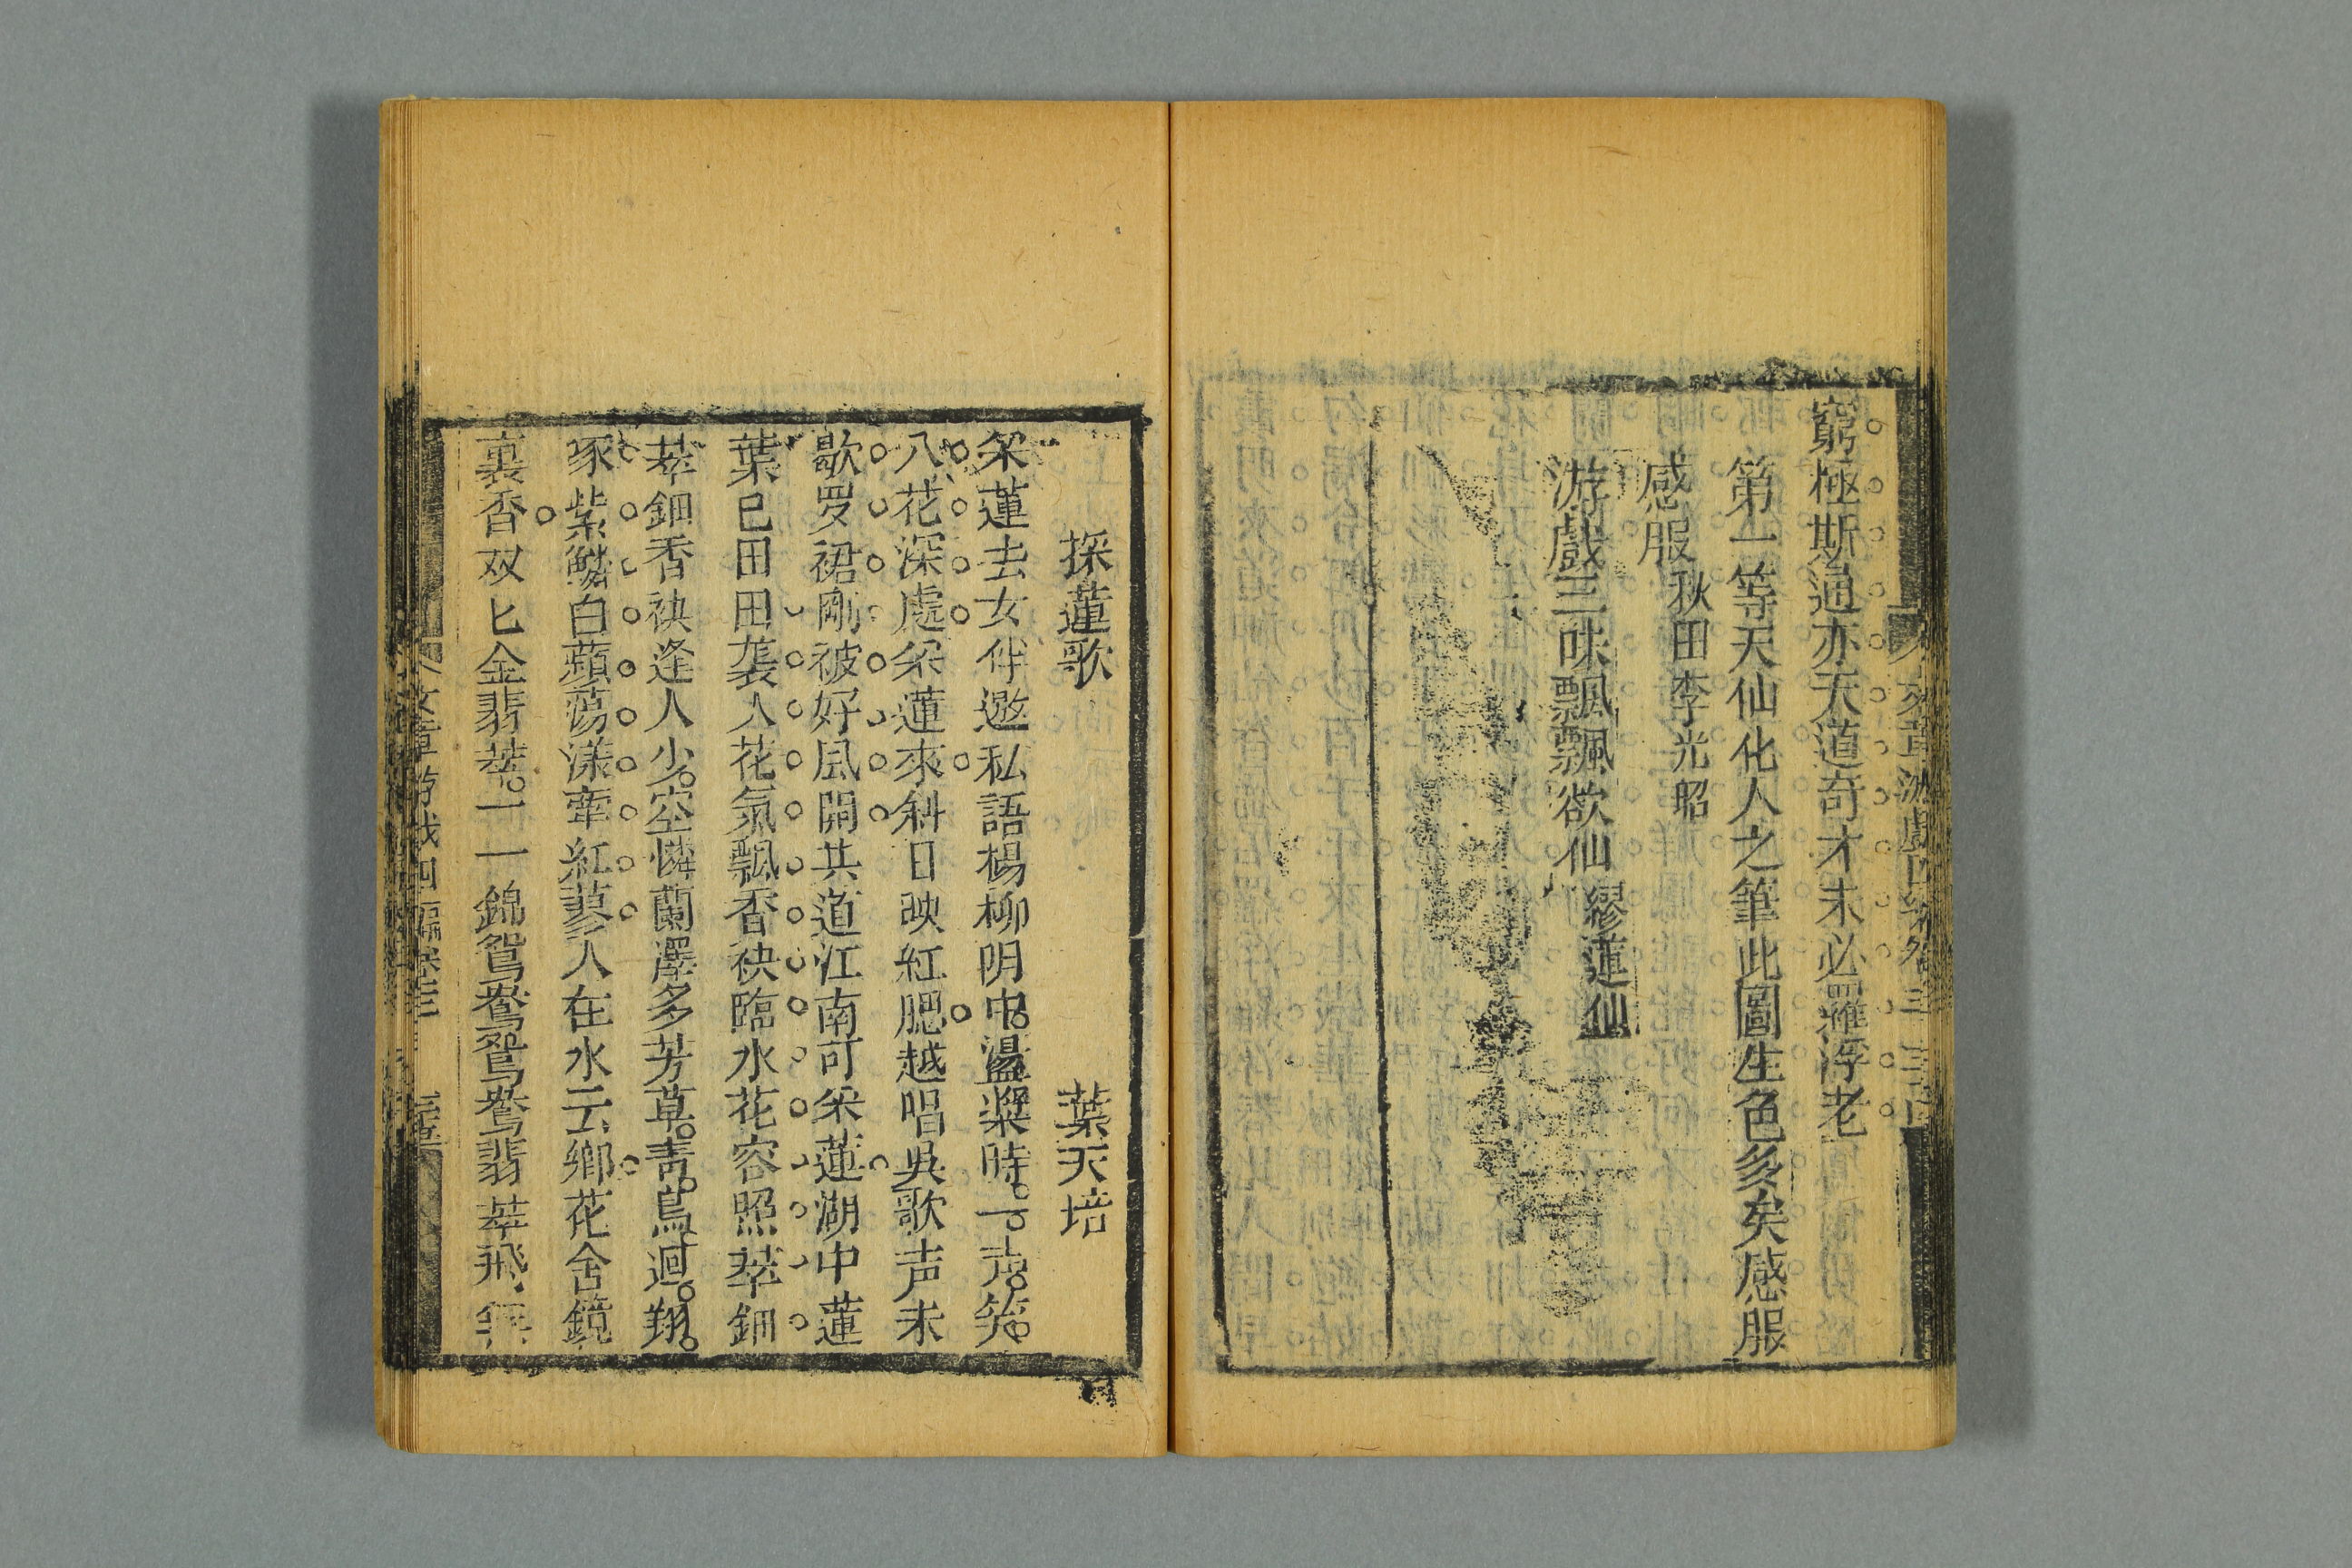 窮極斯通亦天道奇才未必羅浮老
第一等天仙化人之筆此圖生色多矣感服
感服 秋田李光昭
游戲三昧飄飄欲仙 繆蓮仙
採蓮歌 葉天培
采蓮去女伴邀私語楊柳明中盪槳時一声笑
入花深處采蓮來斜日映紅肥越唱吳歌声未
歇罗裙剛被好風開共道江南可采蓮湖中蓮
葉已田田袭人花氣飄香袂臨水花容照萃鈿
萃鈿香袂逢人少空憐蘭澤多芳草青鳥迴翔
啄紫鱗白蘋蕩漾牽紅蓼人在水云鄉花舍鏡
裏香双匕金翡萃一一錦鴛鴦鴛鴦翡萃飛